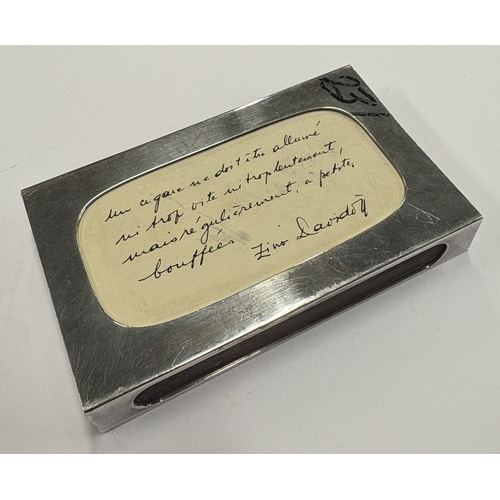 un cigare ne doit être allumé
ni trop vite ni trop lentement,
mais régulièrement, à petites
bouffées. Zino Davidoff